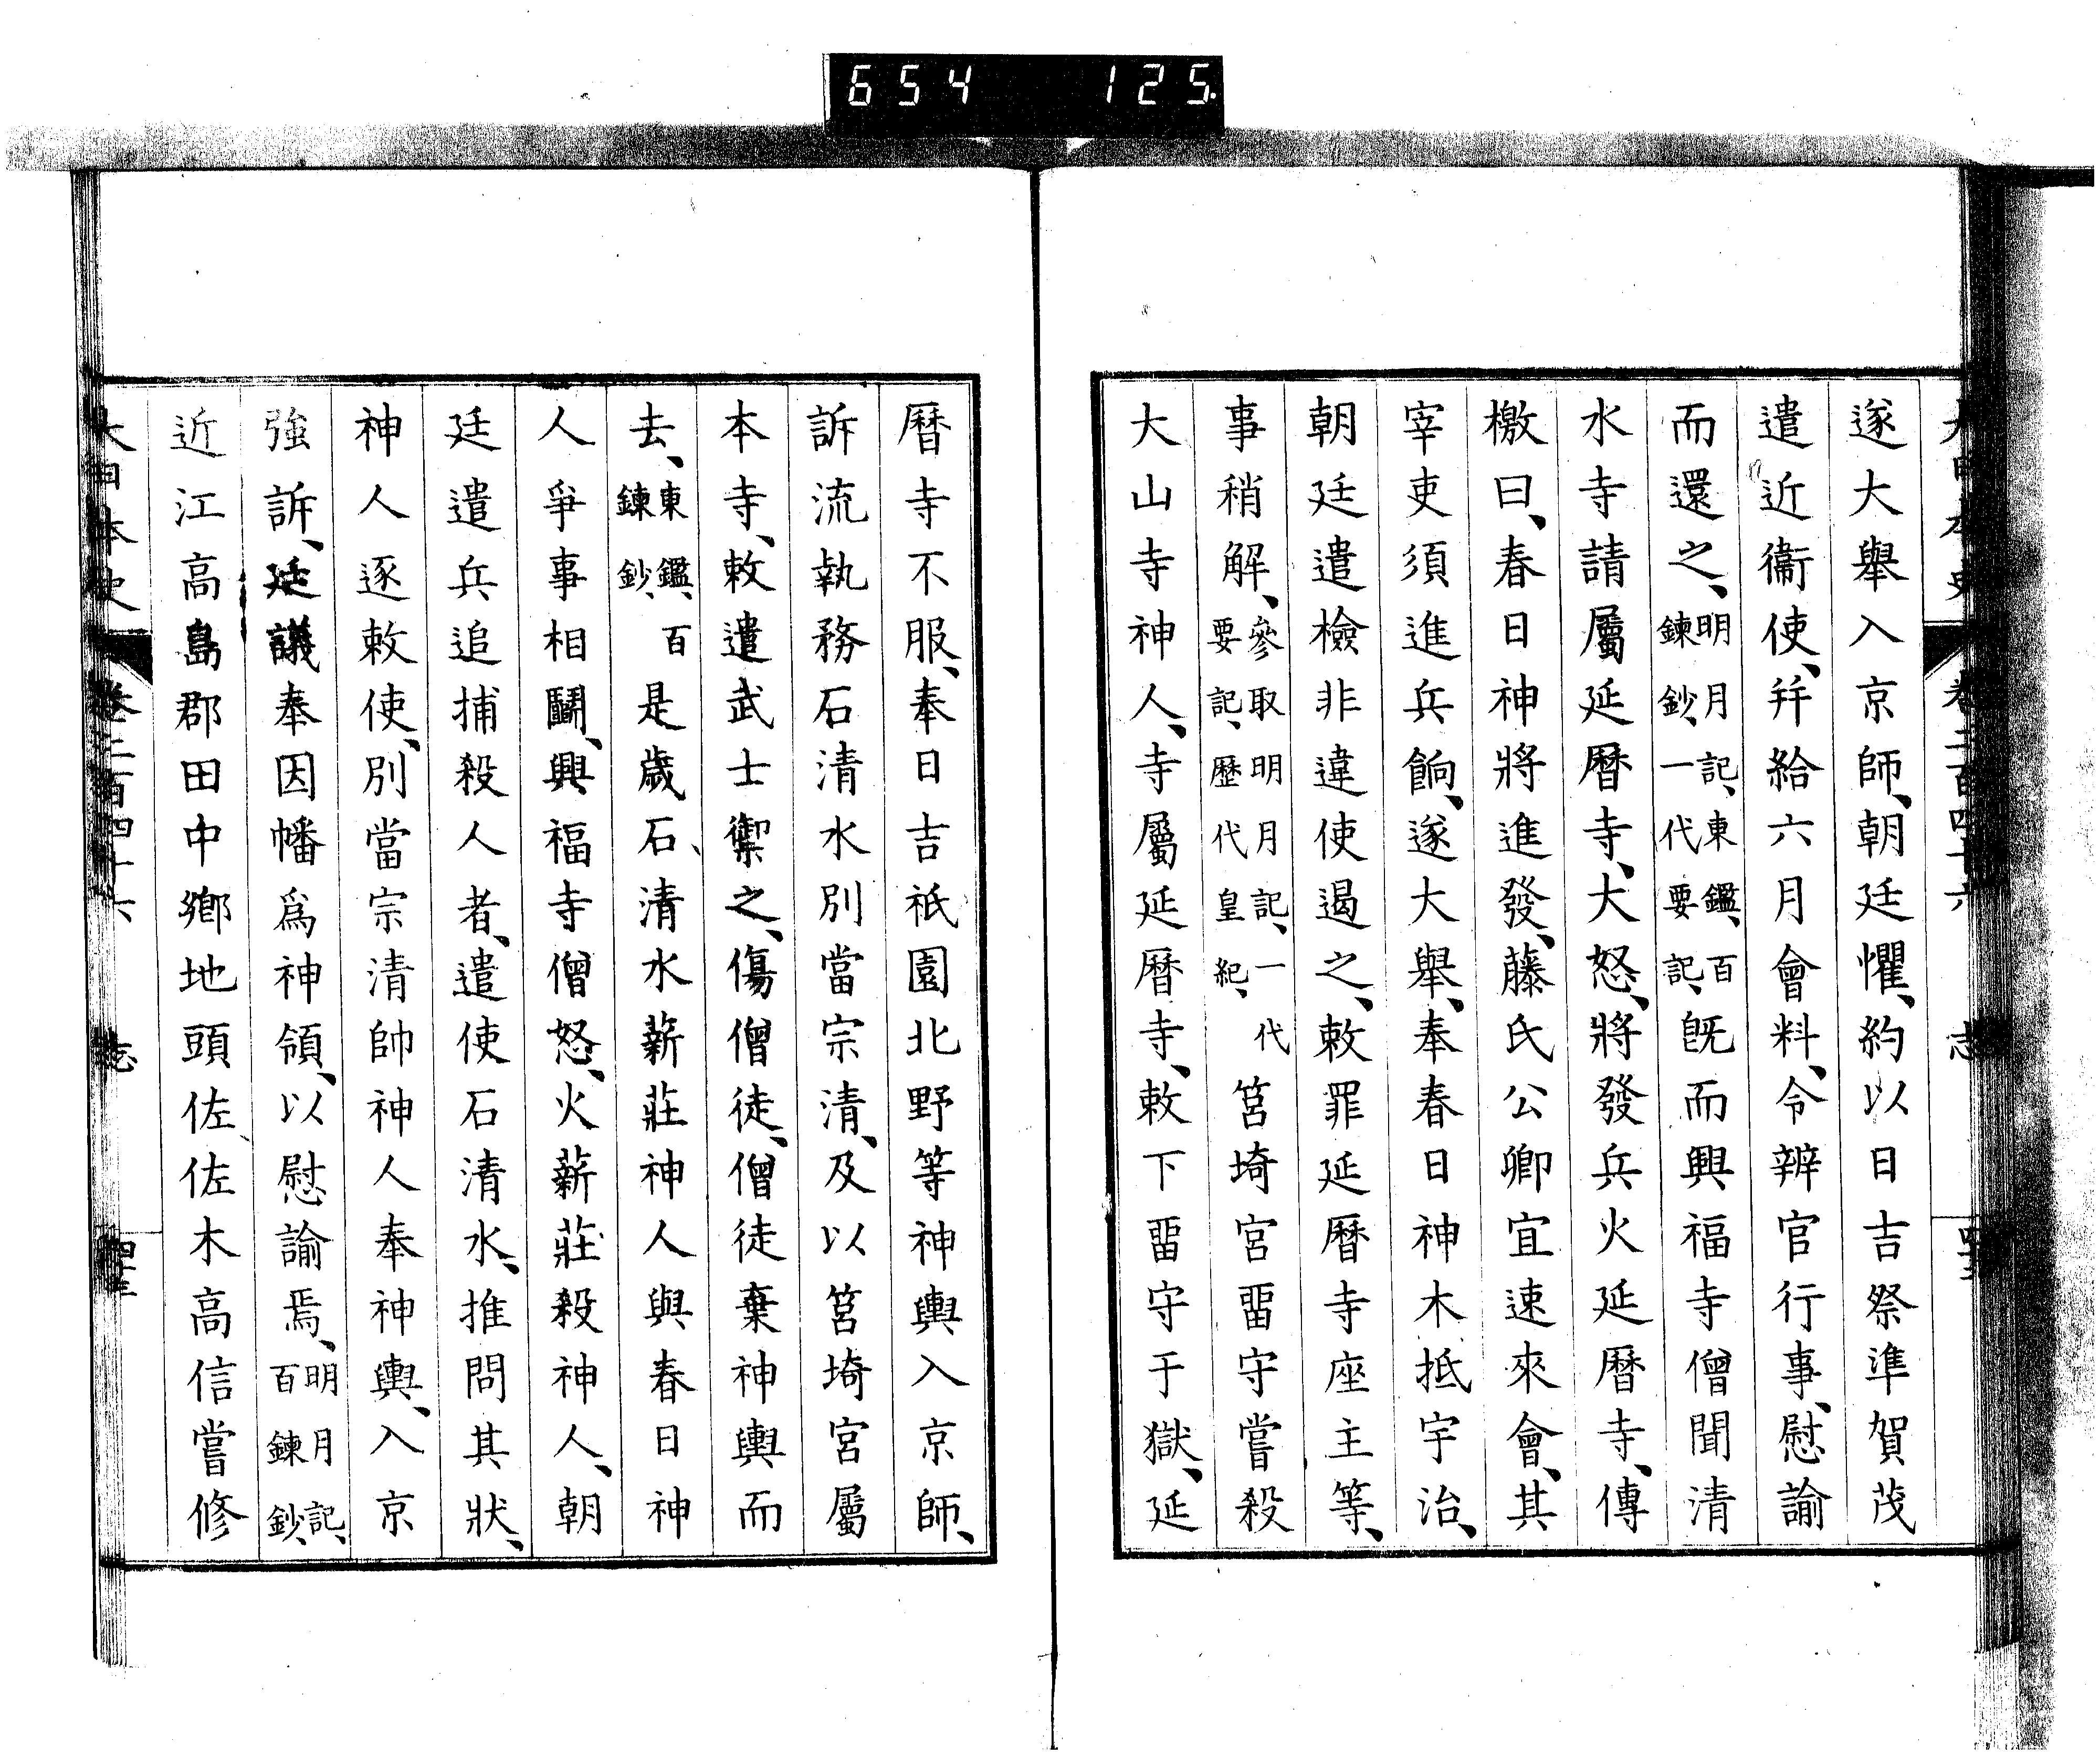 654 125
大日本史 卷二百四十六 志 四十二
遂大舉入京師、朝廷懼、約以日吉祭準賀茂
遣近衞使、幷給六月會料、令辨官行事、慰諭
而還之、明月記、東鑑、百鍊鈔、一代要記、旣而興福寺僧聞清
水寺請屬延曆寺、大怒、將發兵火延曆寺、傳
檄曰、春日神將進發、藤氏公卿宜速來會、其
宰吏須進兵餉、遂大舉、奉春日神木抵宇治、
朝廷遣檢非違使遏之、敕罪延曆寺座主等、
事稍解、參取明月記、一代要記、歷代皇紀、筥埼宮畱守嘗殺
大山寺神人、寺屬延曆寺、敕下畱守于獄、延
曆寺不服、奉日吉祇園北野等神輿入京師、
訴流執務石清水別當宗清、及以筥埼宮屬
本寺、敕遣武士禦之、傷僧徒、僧徒棄神輿而
去、東鑑、百鍊鈔、是歲石清水薪莊神人與春日神
人爭事相鬭、興福寺僧怒、火薪莊殺神人、朝
廷遣兵追捕殺人者、遣使石清水、推問其狀、
神人逐敕使、別當宗清帥神人奉神輿、入京
強訴、廷議奉因幡爲神領、以慰諭焉、明月記、百鍊鈔、
近江高島郡田中鄉地頭佐佐木高信嘗修
大日本史 卷二百四十六 志 四十三